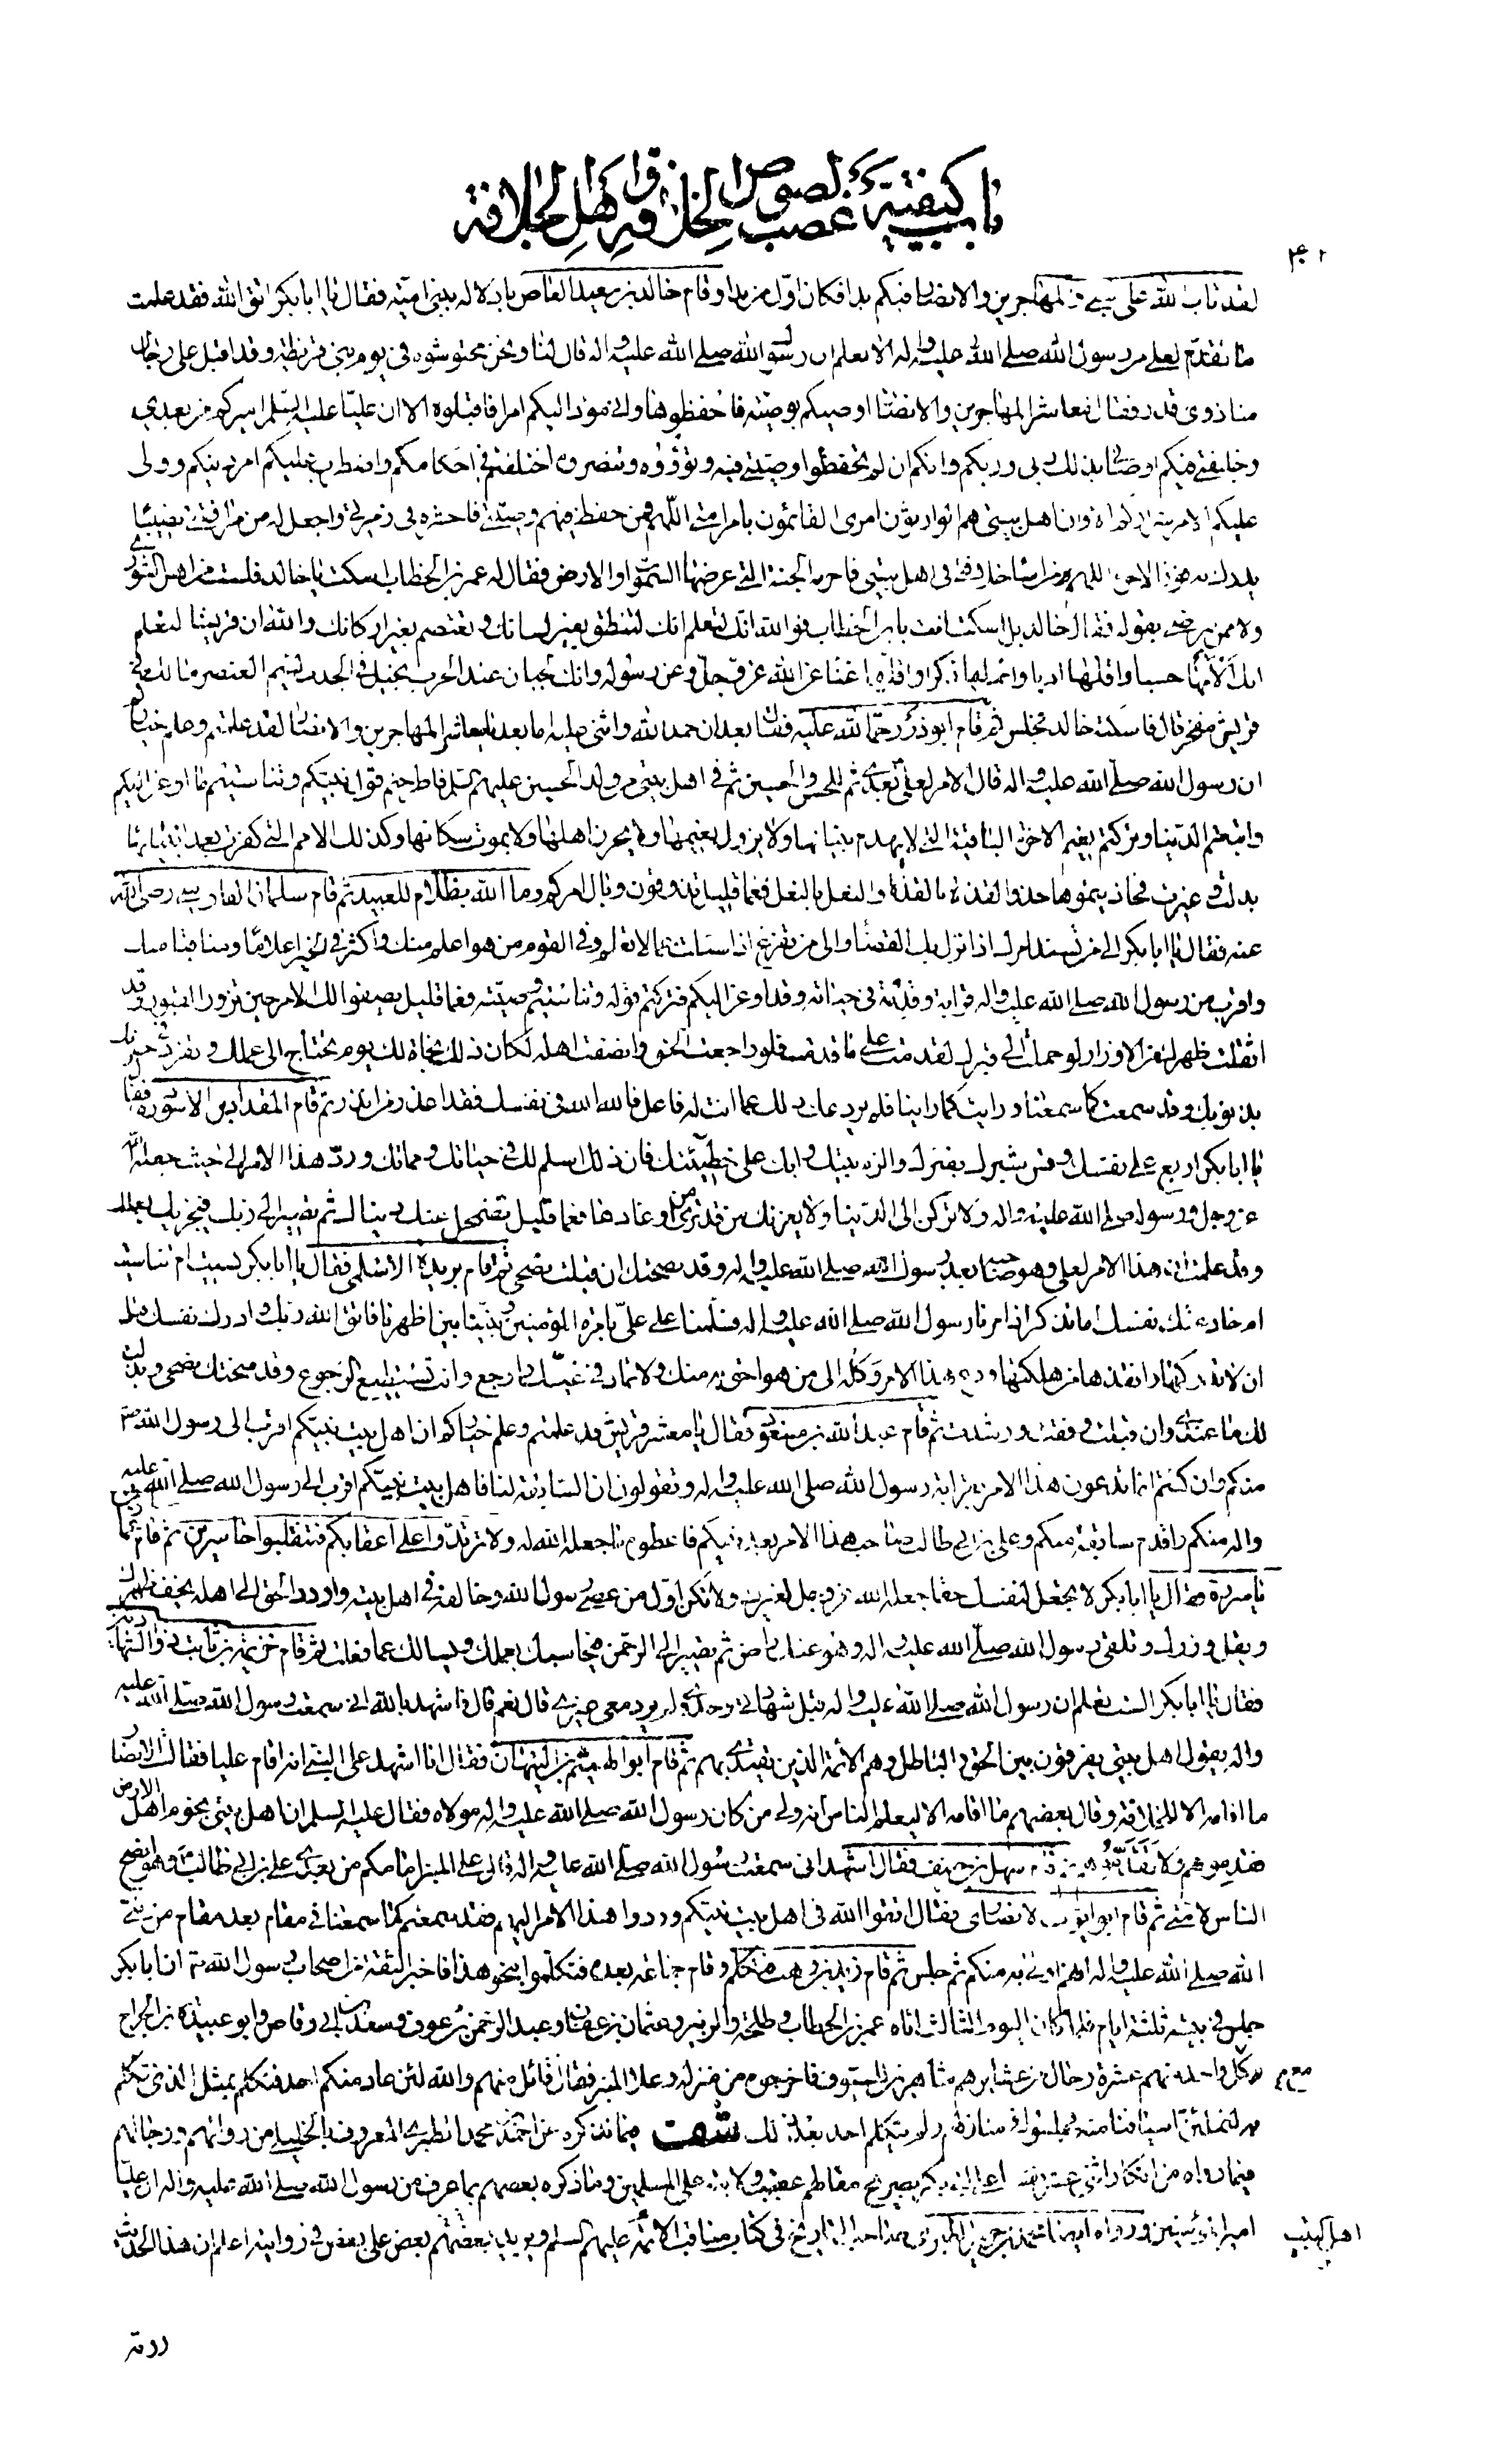 باب كيفية غصب لصوص الخلافة واهل الجلافة
لقد تاب الله على المهاجرين والانصار فبكم بدا فكان اول من بدا وقام خالد بن سعيد بن العاص بادلاله ببنى امية فقال يا ابا بكر اتق الله فقد علمت
ما تقدم لعلى من رسول الله صلى الله عليه واله الا تعلم ان رسول الله صلى الله عليه واله قال لنا ونحن محتوشوه فى يوم بنى قريظة وقد اقبل على رجال
منا ذوى قدر فقال معاشر المهاجرين والانصار اوصيكم بوصية فاحفظوها وانى مؤد اليكم امرا فاقبلوه الا ان عليا عليه السلم اميركم من بعدى
وخليفتى فيكم اوصانى بذلك ربى وربكم وانكم ان لم تحفظوا وصيتى فيه وتؤووه وتنصروه اختلفتم فى احكامكم واضطرب عليكم امر دينكم وولى
عليكم الامر شراركم الا وان اهل بيتى هم الوارثون امرى القائمون بامر امتى اللهم فمن حفظ فيهم وصيتى فاحشره فى زمرتى واجعل له من مرافقتى نصيبا
يدرك به فوز الاخرة اللهم ومن اساء خلافتى فى اهل بيتى فاحرمه الجنة التى عرضها السموات والارض فقال له عمر بن الخطاب اسكت يا خالد فلست من اهل المشورة
ولا ممن يرضى بقوله فقال خالد بل اسكت انت يا بن الخطاب فوالله انك لتعلم انك لتنطق بغير لسانك وتعتصم بغير اركانك والله ان قريشا لتعلم
انك الأمها حسبا واقلها ادبا واخملها ذكرا واقلها غناء عن الله عز وجل وعن رسوله وانك لجبان عند الحرب بخيل فى الجدب لئيم العنصر ما لك فى
قريش مفخر قال فاسكته خالد فجلس ثم قام ابوذر رحمة الله عليه فقال بعد ان حمد الله واثنى عليه اما بعد يا معاشر المهاجرين والانصار لقد علمتم وعلم خياركم
ان رسول الله صلى الله عليه واله قال الامر لعلى بعدى ثم للحسن والحسين ثم فى اهل بيتى من ولد الحسين عليهم السلم فاطرحتم قول نبيكم وتناسيتم ما اوعز اليكم
واتبعتم الدنيا وتركتم نعيم الاخرة الباقية التى لا يهدم بنيانها ولا يزول نعيمها ولا يحزن اهلها ولا يموت سكانها وكذلك الامم التى كفرت بعد انبيائها
بدلت وغيرت فحاذيتموها حذو القذة بالقذة والنعل بالنعل فعما قليل تذوقون وبال امركم وما الله بظلام للعبيد ثم قام سلمان الفارسى رضى الله
عنه فقال يا ابا بكر الى من تسند امرك اذا نزل بك القضاء والى من تفزع اذا سئلت عما لا تعلم وفى القوم من هو اعلم منك واكثر فى الخير اعلاما ومناقبا منك
واقرب من رسول الله صلى الله عليه واله قرابة وقدمة فى حياته وقد اوعز اليكم فتركتم قوله وتناسيتم وصيته فعما قليل يصفو لك الامر حين تزور القبور وقد
اثقلت ظهرك من الاوزار لو حملت الى قبرك لقدمت على ما قدمت فلو راجعت الحق وانصفت اهله لكان ذلك نجاة لك يوم تحتاج الى عملك وتفرد فى حفرتك
بذنوبك وقد سمعت كما سمعنا ورايت كما راينا فلم يردعك ذلك عما انت له فاعل فالله الله فى نفسك فقد اعذر من انذر ثم قام المقداد بن الاسود فقال
يا ابا بكر اربع على نفسك وقس شبرك بفترك والزم بيتك وابك على خطيئتك فان ذلك اسلم لك فى حياتك ومماتك ورد هذا الامر الى حيث جعله الله
عز وجل ورسوله صلى الله عليه واله ولا تركن الى الدنيا ولا يغرنك من قد ترى من اوغادها فعما قليل تضمحل عنك دنياك ثم تصير الى ربك فيجزيك بعملك
وقد علمت ان هذا الامر لعلى وهو صاحبه بعد رسول الله صلى الله عليه واله وقد نصحتك ان قبلت نصحى ثم قام بريدة الاسلمى فقال يا ابا بكر نسيت ام تناسيت
ام خادعتك نفسك اما تذكر اذ امرنا رسول الله صلى الله عليه واله فسلمنا على على بامرة المؤمنين ونبينا بين اظهرنا فاتق الله ربك وادرك نفسك قبل
ان لا تدركها وانقذها من هلكتها ودع هذا الامر وكله الى من هو احق به منك ولا تماد فى غيك وارجع وانت تستطيع الرجوع وقد منحتك نصحى وبذلت
لك ما عندى وان قبلت وفقت ورشدت ثم قام عبد الله بن مسعود فقال يا معشر قريش قد علمتم وعلم خياركم ان اهل بيت نبيكم اقرب الى رسول الله ص
منكم وان كنتم انما تدعون هذا الامر بقرابة رسول الله صلى الله عليه واله وتقولون ان السابقة لنا فاهل بيت نبيكم اقرب الى رسول الله صلى الله عليه
واله منكم واقدم سابقة منكم وعلى بن ابى طالب صاحب هذا الامر بعد نبيكم فاعطوه ما جعله الله له ولا ترتدوا على اعقابكم فتنقلبوا خاسرين ثم قام عمار
بن ياسر فقال يا ابا بكر لا تجعل لنفسك حقا جعله الله عز وجل لغيرك ولا تكن اول من عصى رسول الله وخالفه فى اهل بيته واردد الحق الى اهله يخف ظهرك
ويقل وزرك وتلقى رسول الله صلى الله عليه واله وهو عنك راض ثم تصير الى الرحمن فيحاسبك بعملك ويسالك عما فعلت ثم قام خزيمة بن ثابت ذو الشهادتين
فقال يا ابا بكر الست تعلم ان رسول الله صلى الله عليه واله قبل شهادتى وحدى ولم يرد معى غيرى قال نعم قال فاشهد بالله انى سمعت رسول الله صلى الله عليه
واله يقول اهل بيتى يفرقون بين الحق والباطل وهم الائمة الذين يقتدى بهم ثم قام ابو الهيثم بن التيهان فقال انا اشهد على النبى انه اقام عليا فقالت الانصار
ما اقامه الا للخلافة وقال بعضهم ما اقامه الا ليعلم الناس انه ولى من كان رسول الله صلى الله عليه واله مولاه فقال عليه السلم ان اهل بيتى نجوم اهل الارض
فقدموهم ولا تقدموهم ثم قام سهل بن حنيف فقال اشهد انى سمعت رسول الله صلى الله عليه واله قال على المنبر امامكم من بعدى على بن ابى طالب وهو انصح
الناس لامتى ثم قام ابو ايوب الانصارى فقال اتقوا الله فى اهل بيت نبيكم وردوا هذا الامر اليهم فقد سمعتم كما سمعنا فى مقام بعد مقام من نبى
الله صلى الله عليه واله انهم اولى به منكم ثم جلس ثم قام زيد بن وهب فتكلم وقام جماعة بعده فتكلموا بنحو هذا فاخبر الثقة من اصحاب رسول الله ص ان ابا بكر
جلس فى بيته ثلثة ايام فلما كان اليوم الثالث اتاه عمر بن الخطاب وطلحة والزبير وعثمان بن عفان وعبد الرحمن بن عوف وسعد بن ابى وقاص وابو عبيدة بن الجراح
مع كل واحد منهم عشرة رجال من عشايرهم شاهرين السيوف فاخرجوه من منزله وعلا المنبر فقال قائل منهم والله لئن عاد منكم احد فتكلم بمثل الذى تكلم
به لنملئن اسيافنا منه فجلسوا فى منازلهم ولم يتكلم احد بعد ذلك شف فيما نذكره عن احمد بن محمد الطبرى المعروف بالخليلى من رواتهم ورجالهم
فيما رواه من انكار اثنى عشر نفسا على ابى بكر بصريح مقالهم عقيب ولايته على المسلمين وما ذكره بعضهم بما عرف من رسول الله صلى الله عليه واله ان عليا
امير المؤمنين ورواه ايضا محمد بن جرير الطبرى صاحب التاريخ فى كتاب مناقب الائمة عليهم السلم ويزيد بعضهم بعض على بعض فى روايته اعلم ان هذا الحديث
اهل البيت
روته